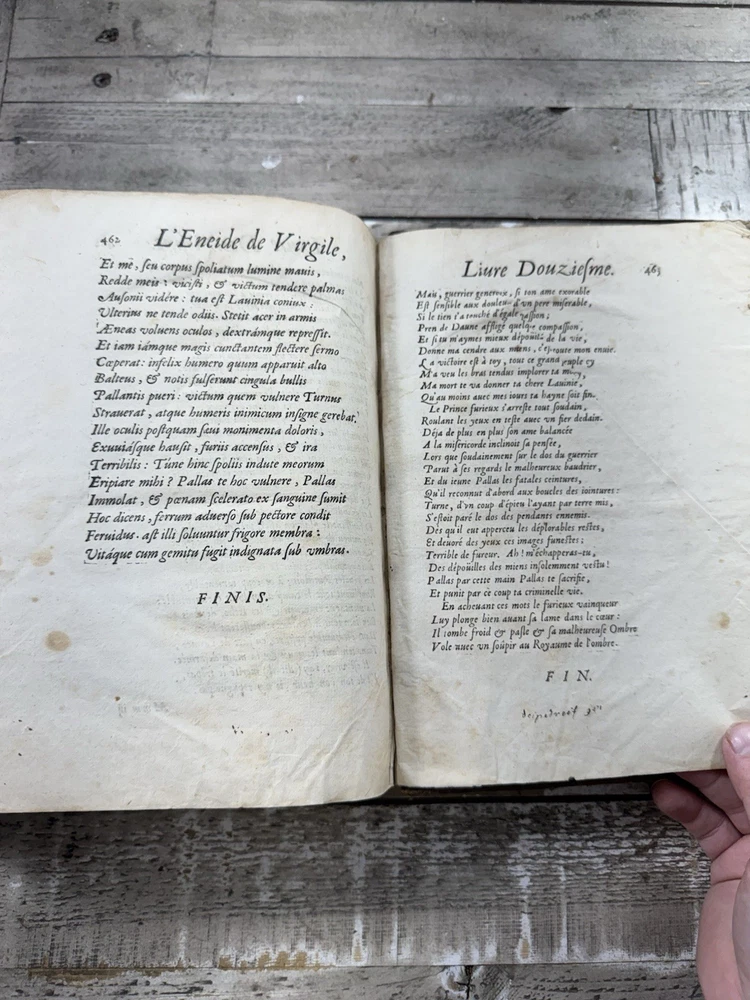 462 L'Eneide de Virgile,
Et mē, seu corpus spoliatum lumine mauis,
Redde meis: vicisti, & victum tendere palmas
Ausonii vidére: tua est Lauinia coniux:
Vlterius ne tende odiis. Stetit acer in armis
Æneas voluens oculos, dextrámque repressit.
Et iam iámque magis cunctantem flectere sermo
Cœperat: infelix humero quum apparuit alto
Balteus, & notis fulserunt cingula bullis
Pallantis pueri: victum quem vulnere Turnus
Strauerat, atque humeris inimicum insigne gerebat.
Ille oculis postquam sæui monimenta doloris,
Exuuiásque hausit, furiis accensus, & ira
Terribilis: Túne hinc spoliis indute meorum
Eripiare mihi? Pallas te hoc vulnere, Pallas
Immolat, & pœnam scelerato ex sanguine sumit
Hoc dicens, ferrum aduerso sub pectore condit
Feruidus. ast illi soluuntur frigore membra:
Vitáque cum gemitu fugit indignata sub vmbras.
FINIS.
Liure Douziesme. 463
Mais, guerrier genereux, si ton ame exorable
Est sensible aux douleurs d'vn pere miserable,
Si le tien t'a touché d'égale passion;
Pren de Daune affligé quelque compassion,
Et si tu m'aymes mieux dépouillé de la vie,
Donne ma cendre aux miens, c'est toute mon enuie.
La victoire est à toy, tout ce grand peuple icy
M'a veu les bras tendus implorer ta mercy,
Ma mort te va donner ta chere Lauinie,
Qu'au moins auec mes iours ta hayne soit finie.
Le Prince furieux s'arreste tout soudain,
Roulant les yeux en teste auec vn fier dedain.
Déja de plus en plus son ame balancée
A la misericorde inclinoit sa pensée,
Lors que soudainement sur le dos du guerrier
Parut à ses regards le malheureux baudrier,
Et du ieune Pallas les fatales ceintures,
Qu'il reconnut d'abord aux boucles des iointures:
Turne, d'vn coup d'épieu l'ayant par terre mis,
S'estoit paré le dos des pendants ennemis.
Dés qu'il eut apperceu les déplorables restes,
Et deuoré des yeux ces images funestes;
Terrible de fureur. Ah! m'échapperas-tu,
Des dépoüilles des miens insolemment vestu!
Pallas par cette main Pallas te sacrifie,
Et punit par ce coup ta criminelle vie.
En acheuant ces mots le furieux vainqueur
Luy plonge bien auant sa lame dans le cœur:
Il tombe froid & pasle & sa malheureuse Ombre
Vole auec vn soûpir au Royaume de l'ombre.
FIN.